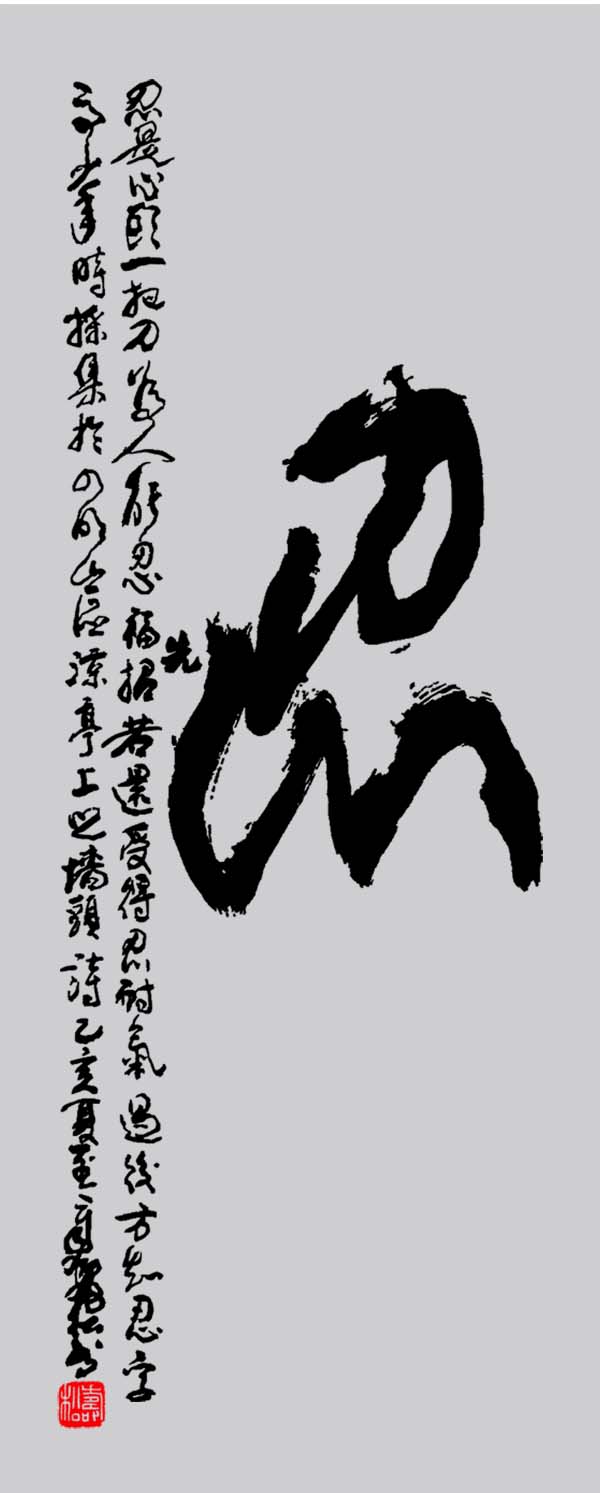 忍
忍是心頭一把刀為人能忍福先招若還受得忍耐氣過後方知忍字
高少年時採集於四明山區涼亭上之墻頭詩乙亥夏至
壽松